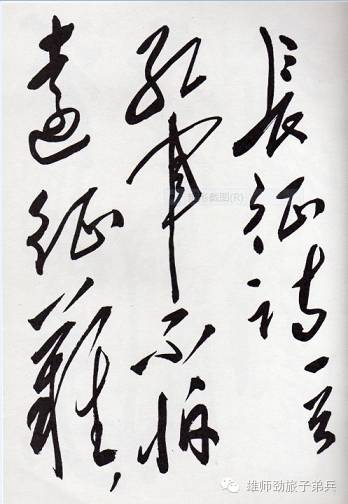 長征詩一首
紅軍不怕
遠征難，
矩形截图(R)
雄师劲旅子弟兵